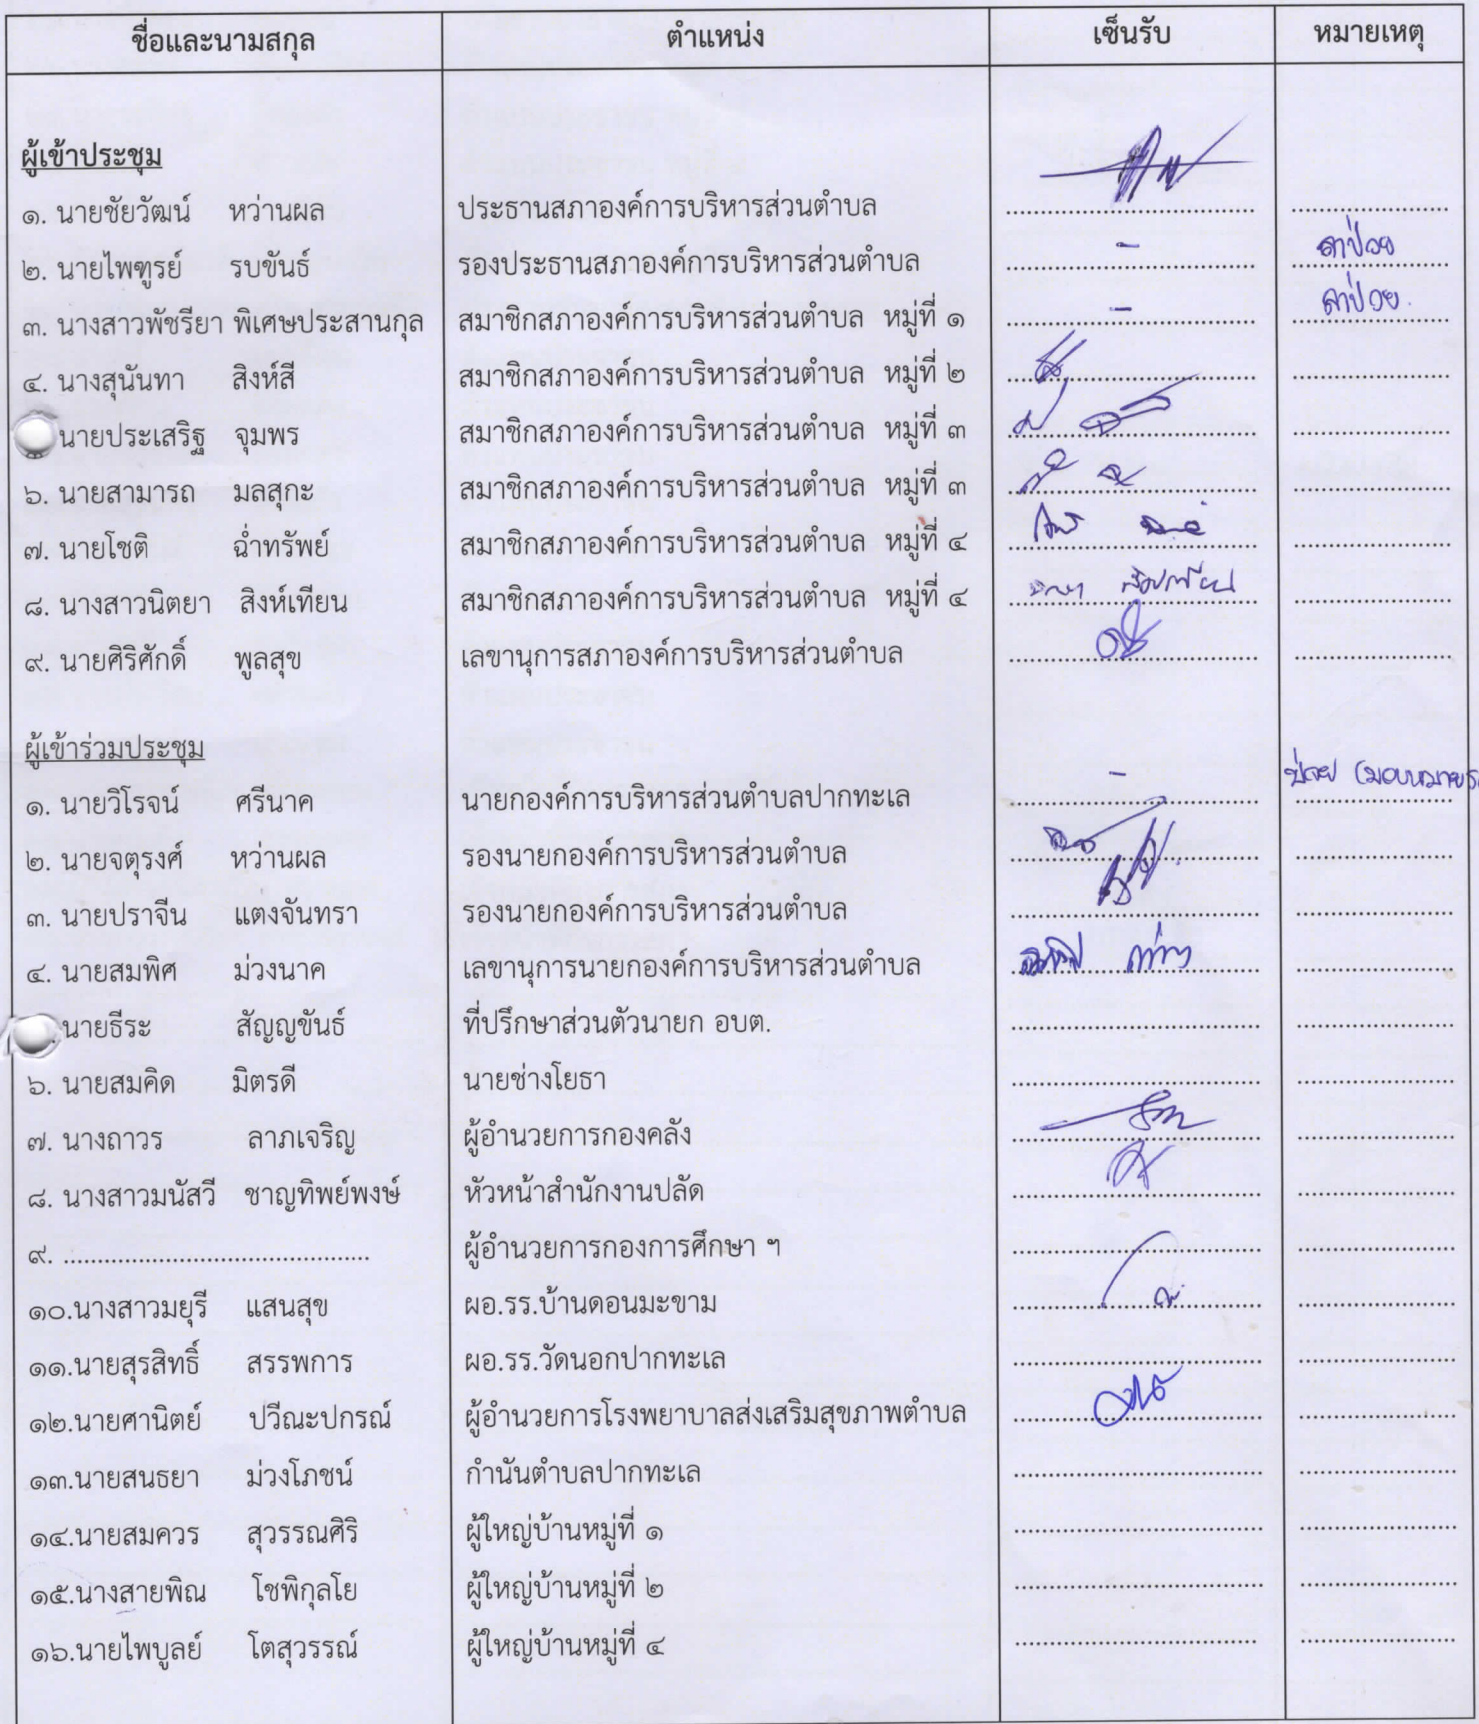 ชื่อและนามสกุล ตำแหน่ง เซ็นรับ หมายเหตุ
ผู้เข้าประชุม
๑. นายชัยวัฒน์ หว่านผล ประธานสภาองค์การบริหารส่วนตำบล
๒. นายไพฑูรย์ รบขันธ์ รองประธานสภาองค์การบริหารส่วนตำบล - ลาป่วย
๓. นางสาวพัชรียา พิเศษประสานกุล สมาชิกสภาองค์การบริหารส่วนตำบล หมู่ที่ ๑ - ลาป่วย
๔. นางสุนันทา สิงห์สี สมาชิกสภาองค์การบริหารส่วนตำบล หมู่ที่ ๒
นายประเสริฐ จุมพร สมาชิกสภาองค์การบริหารส่วนตำบล หมู่ที่ ๓
๖. นายสามารถ มลสุกะ สมาชิกสภาองค์การบริหารส่วนตำบล หมู่ที่ ๓
๗. นายโชติ ฉ่ำทรัพย์ สมาชิกสภาองค์การบริหารส่วนตำบล หมู่ที่ ๔
๘. นางสาวนิตยา สิงห์เทียน สมาชิกสภาองค์การบริหารส่วนตำบล หมู่ที่ ๔
๙. นายศิริศักดิ์ พูลสุข เลขานุการสภาองค์การบริหารส่วนตำบล
ผู้เข้าร่วมประชุม
๑. นายวิโรจน์ ศรีนาค นายกองค์การบริหารส่วนตำบลปากทะเล - ป่วย (มอบหมาย
๒. นายจตุรงศ์ หว่านผล รองนายกองค์การบริหารส่วนตำบล
๓. นายปราจีน แตงจันทรา รองนายกองค์การบริหารส่วนตำบล
๔. นายสมพิศ ม่วงนาค เลขานุการนายกองค์การบริหารส่วนตำบล
นายธีระ สัญญขันธ์ ที่ปรึกษาส่วนตัวนายก อบต.
๖. นายสมคิด มิตรดี นายช่างโยธา
๗. นางถาวร ลาภเจริญ ผู้อำนวยการกองคลัง
๘. นางสาวมนัสวี ชาญทิพย์พงษ์ หัวหน้าสำนักงานปลัด
๙. .............................................. ผู้อำนวยการกองการศึกษา ฯ
๑๐.นางสาวมยุรี แสนสุข ผอ.รร.บ้านดอนมะขาม
๑๑.นายสุรสิทธิ์ สรรพการ ผอ.รร.วัดนอกปากทะเล
๑๒.นายศานิตย์ ปวีณะปกรณ์ ผู้อำนวยการโรงพยาบาลส่งเสริมสุขภาพตำบล
๑๓.นายสนธยา ม่วงโภชน์ กำนันตำบลปากทะเล
๑๔.นายสมควร สุวรรณศิริ ผู้ใหญ่บ้านหมู่ที่ ๑
๑๕.นางสายพิณ โชพิกุลโย ผู้ใหญ่บ้านหมู่ที่ ๒
๑๖.นายไพบูลย์ โตสุวรรณ์ ผู้ใหญ่บ้านหมู่ที่ ๔